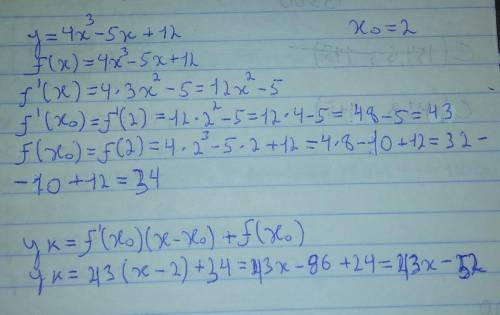 y=4x³-5x+12 x₀=2
f(x)=4x³-5x+12
f'(x)=4·3x²-5=12x²-5
f'(x₀)=f'(2)=12·2²-5=12·4-5=48-5=43
f(x₀)=f(2)=4·2³-5·2+12=4·8-10+12=32-
-10+12=34
yк=f'(x₀)(x-x₀)+f(x₀)
yк=43(x-2)+34=43x-86+24=43x-52